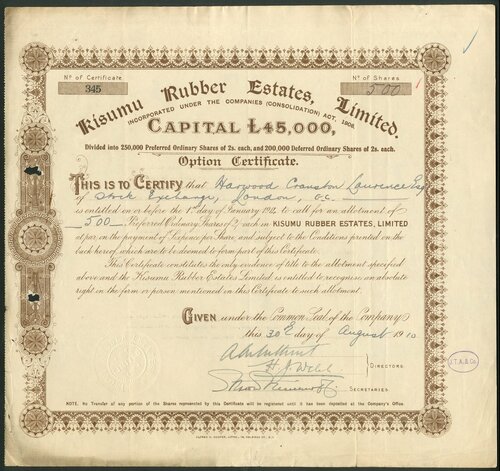 No. of Certificate
345
No. of Shares
500
Kisumu Rubber Estates, Limited.
INCORPORATED UNDER THE COMPANIES (CONSOLIDATION) ACT, 1908.
CAPITAL £45,000,
Divided into 250,000 Preferred Ordinary Shares of 2s. each, and 200,000 Deferred Ordinary Shares of 2s. each.
Option Certificate.
THIS IS TO CERTIFY that Harwood Cranston Lawrence Esq
of Stock Exchange, London, E.C.
is entitled on or before the 1st day of January 1912 to call for an allotment of
500 Preferred Ordinary Shares of 2/- each in KISUMU RUBBER ESTATES, LIMITED
at par on the payment of Sixpence per Share and subject to the Conditions printed on the
back hereof, which are to be deemed to form part of this Certificate.
This Certificate constitutes the only evidence of title to the allotment specified
above and the Kisumu Rubber Estates Limited is entitled to recognise an absolute
right in the form or person mentioned in this Certificate to such allotment.
GIVEN under the Common Seal of the Company
this 30th day of August 1910
DIRECTORS.
SECRETARIES.
J.T.A. & Co.
NOTE. No Transfer of any portion of the Shares represented by this Certificate will be registered until it has been deposited at the Company's Office.